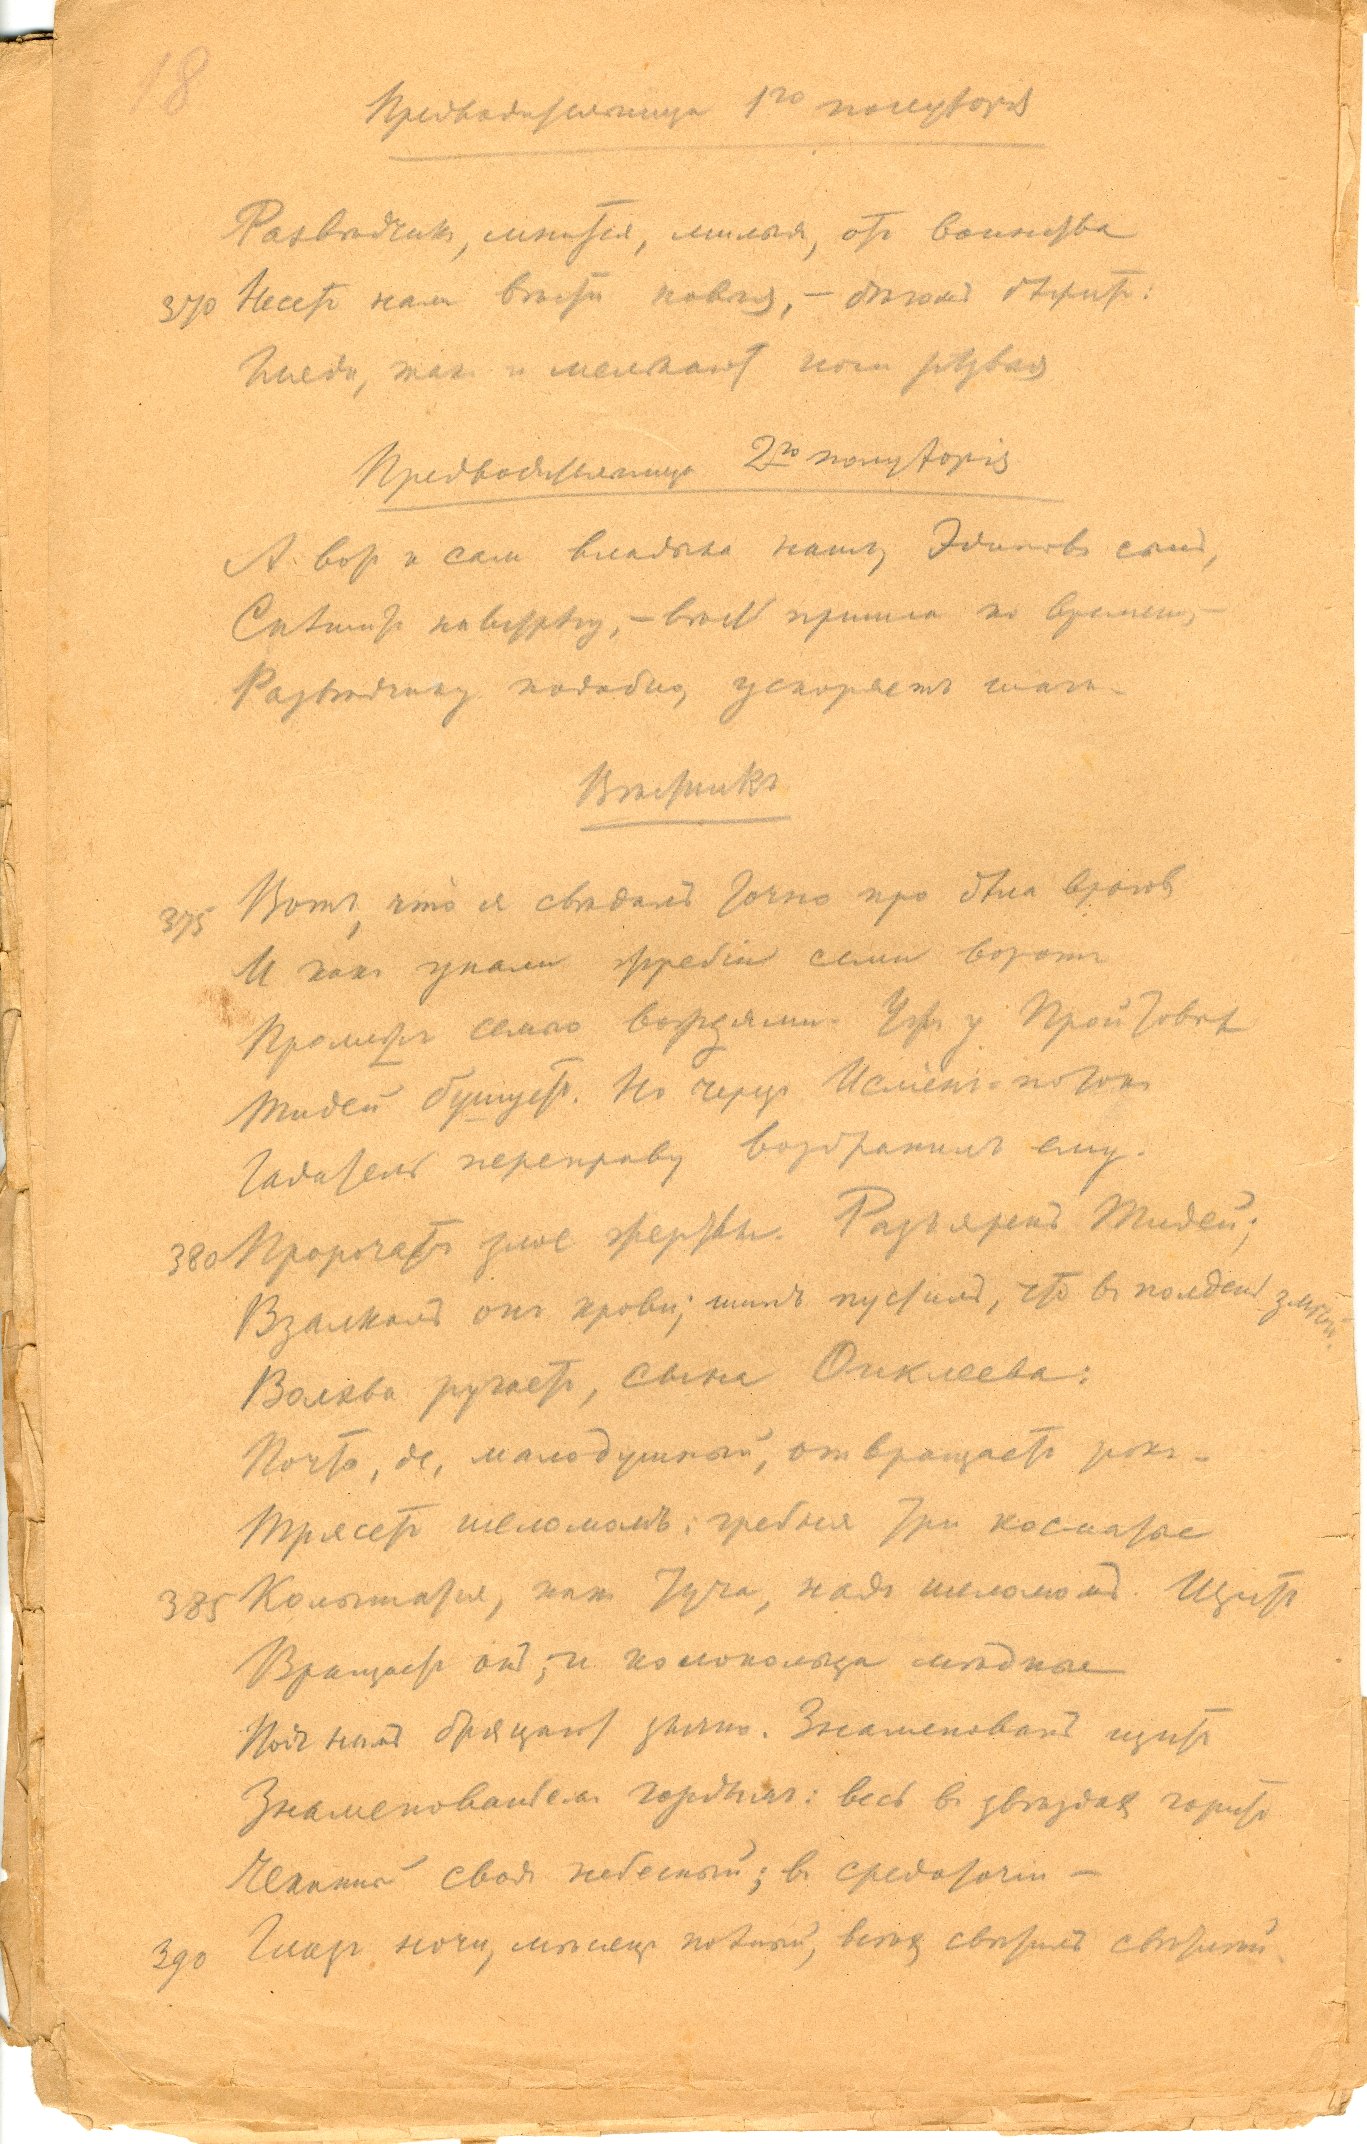 18
Предводительница 1го полухорія
Развѣдчикъ, мнится, милыя, отъ воинства
370 Несетъ намъ вѣсти новыя, – бѣгомъ бѣжитъ:
Гляди, какъ и мелькаютъ ноги рѣзвыя
Предводительница 2го полухорія
А вотъ и самъ владыка нашъ, Эдиповъ сынъ,
Спѣшитъ навстрѣчу, – вѣсть пришла ко времени, –
Развѣдчику подобно, ускоряетъ шаги.
Вѣстникъ
375 Вотъ, что я свѣдалъ точно про дѣла враговъ
И какъ упали жребіи семи воротъ
Промежъ семью вождями. Ужъ у Пройтовыхъ
Тидей бушуетъ. Но черезъ Исменъ-потокъ
Гадатель переправу возбранилъ ему.
380 Пророчатъ злое жертвы. Разъяренъ Тидей;
Взалкалъ онъ крови; шипъ пустилъ, что въ полдень змѣй.
Волхва ругаетъ, сына Оиклеева:
Почто, де, малодушный, отвращаетъ рокъ. –
Трясетъ шеломомъ: гребня три косматые
385 Колышатся, какъ туча, надъ шеломомъ. Щитъ
Вращаетъ онъ, и колокольца мѣдные
Подъ нимъ бряцаютъ зычно. Знаменованъ щитъ
Знаменованьемъ гордымъ: весь въ звѣздахъ горитъ
Чеканный сводъ небесный; въ средоточіи –
390 Глазъ ночи, мѣсяцъ полный, всѣхъ свѣтилъ свѣтлѣй.